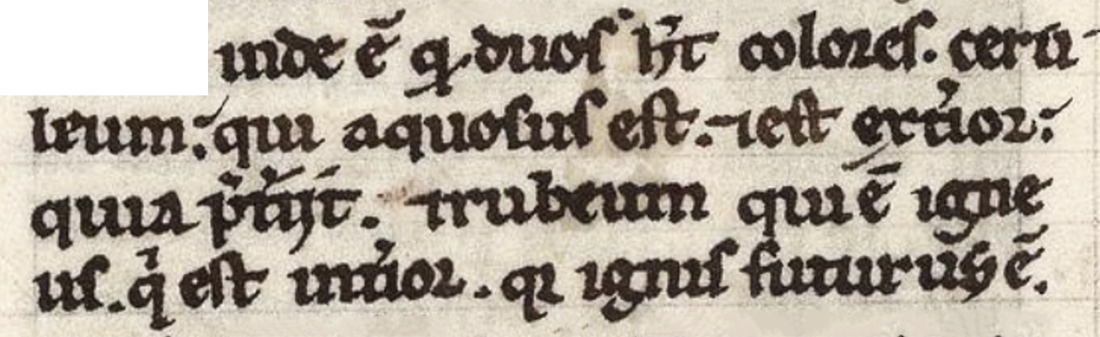 inde ē q. duos h̄t colores. ceru-
leum: qui aquosus est. ⁊ est ext̓ior:
quia p̄t̓ijt. ⁊ rubeum qui ē igne
us. q̓ est int̓ior. qꝛ ignis futurus ē.